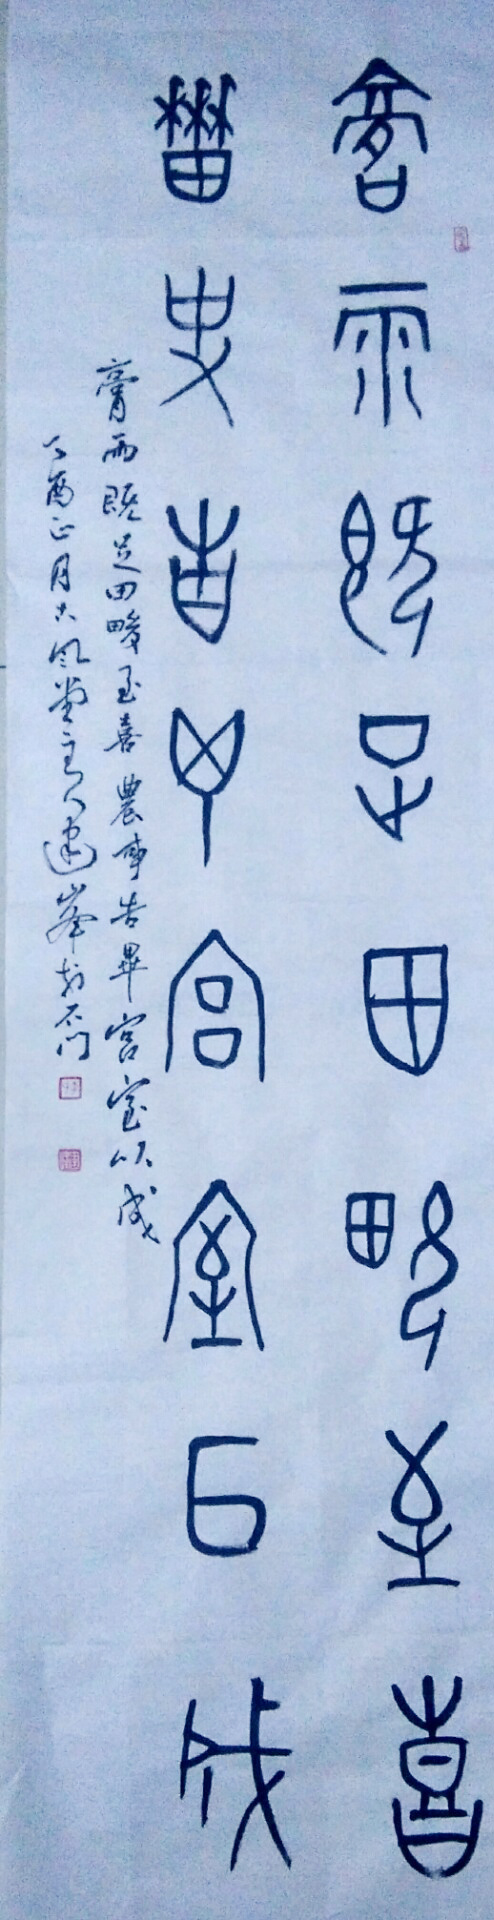 膏雨既足田畯至喜
農事告畢宮室以成
膏雨既足田畯至喜農事告畢宮室以成
丁酉正月大風堂主人建峰於石门